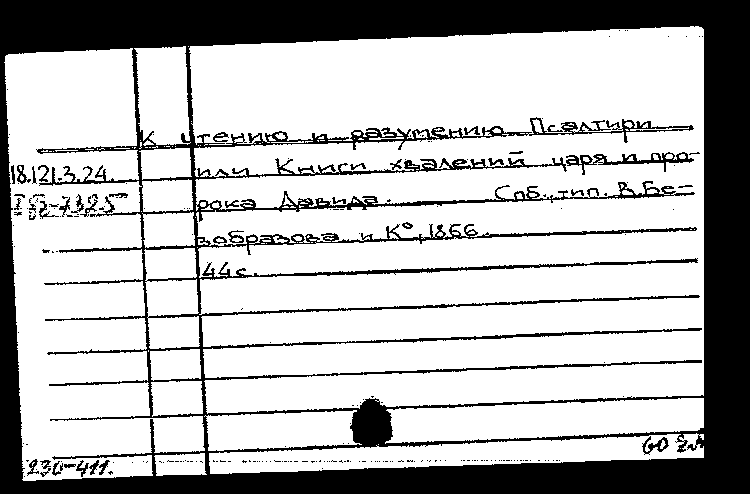 К чтению и разумению Псалтири
18.121.3.24. или Книги хвалений царя и про-
рока Давида. Спб., тип. В. Бе-
зобразова и К°, 1866.
44 с.
230-411.